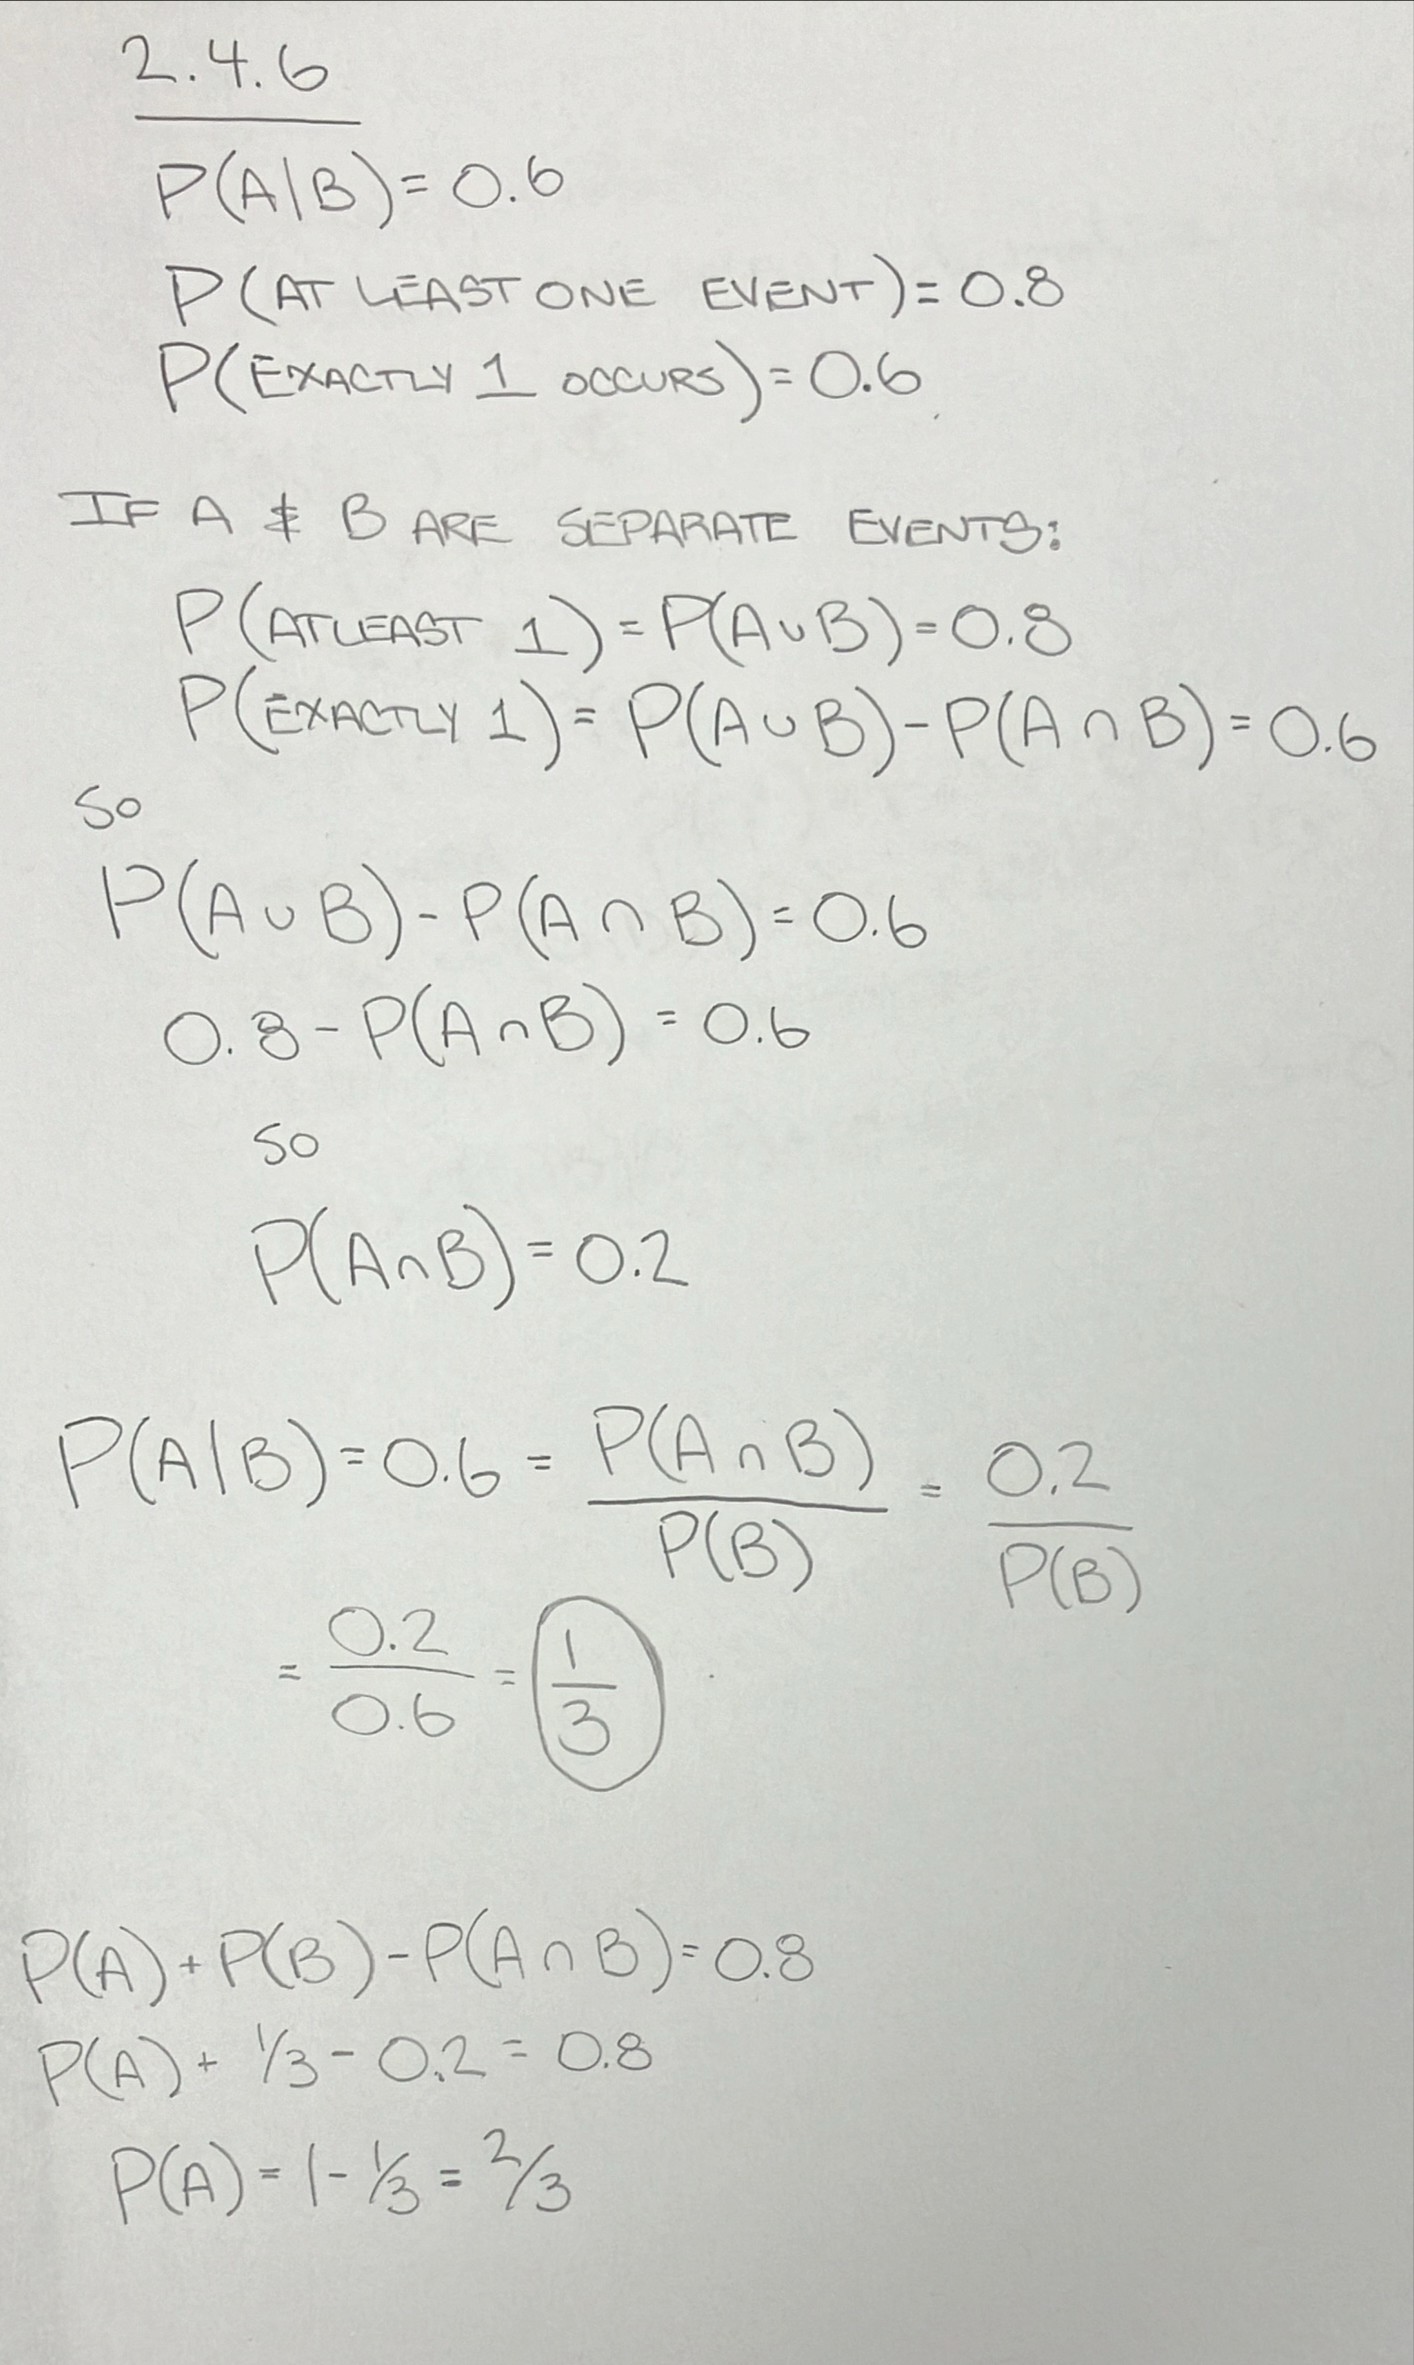 2.4.6
P(A|B)=0.6
P(AT LEAST ONE EVENT)=0.8
P(EXACTLY 1 OCCURS)=0.6
IF A & B ARE SEPARATE EVENTS:
P(ATLEAST 1)=P(A∪B)=0.8
P(EXACTLY 1)=P(A∪B)-P(A∩B)=0.6
SO
P(A∪B)-P(A∩B)=0.6
0.8-P(A∩B)=0.6
SO
P(A∩B)=0.2
P(A|B)=0.6=P(A∩B)/P(B)=0.2/P(B)
=0.2/0.6=1/3
P(A)+P(B)-P(A∩B)=0.8
P(A)+1/3-0.2=0.8
P(A)=1-1/3=2/3